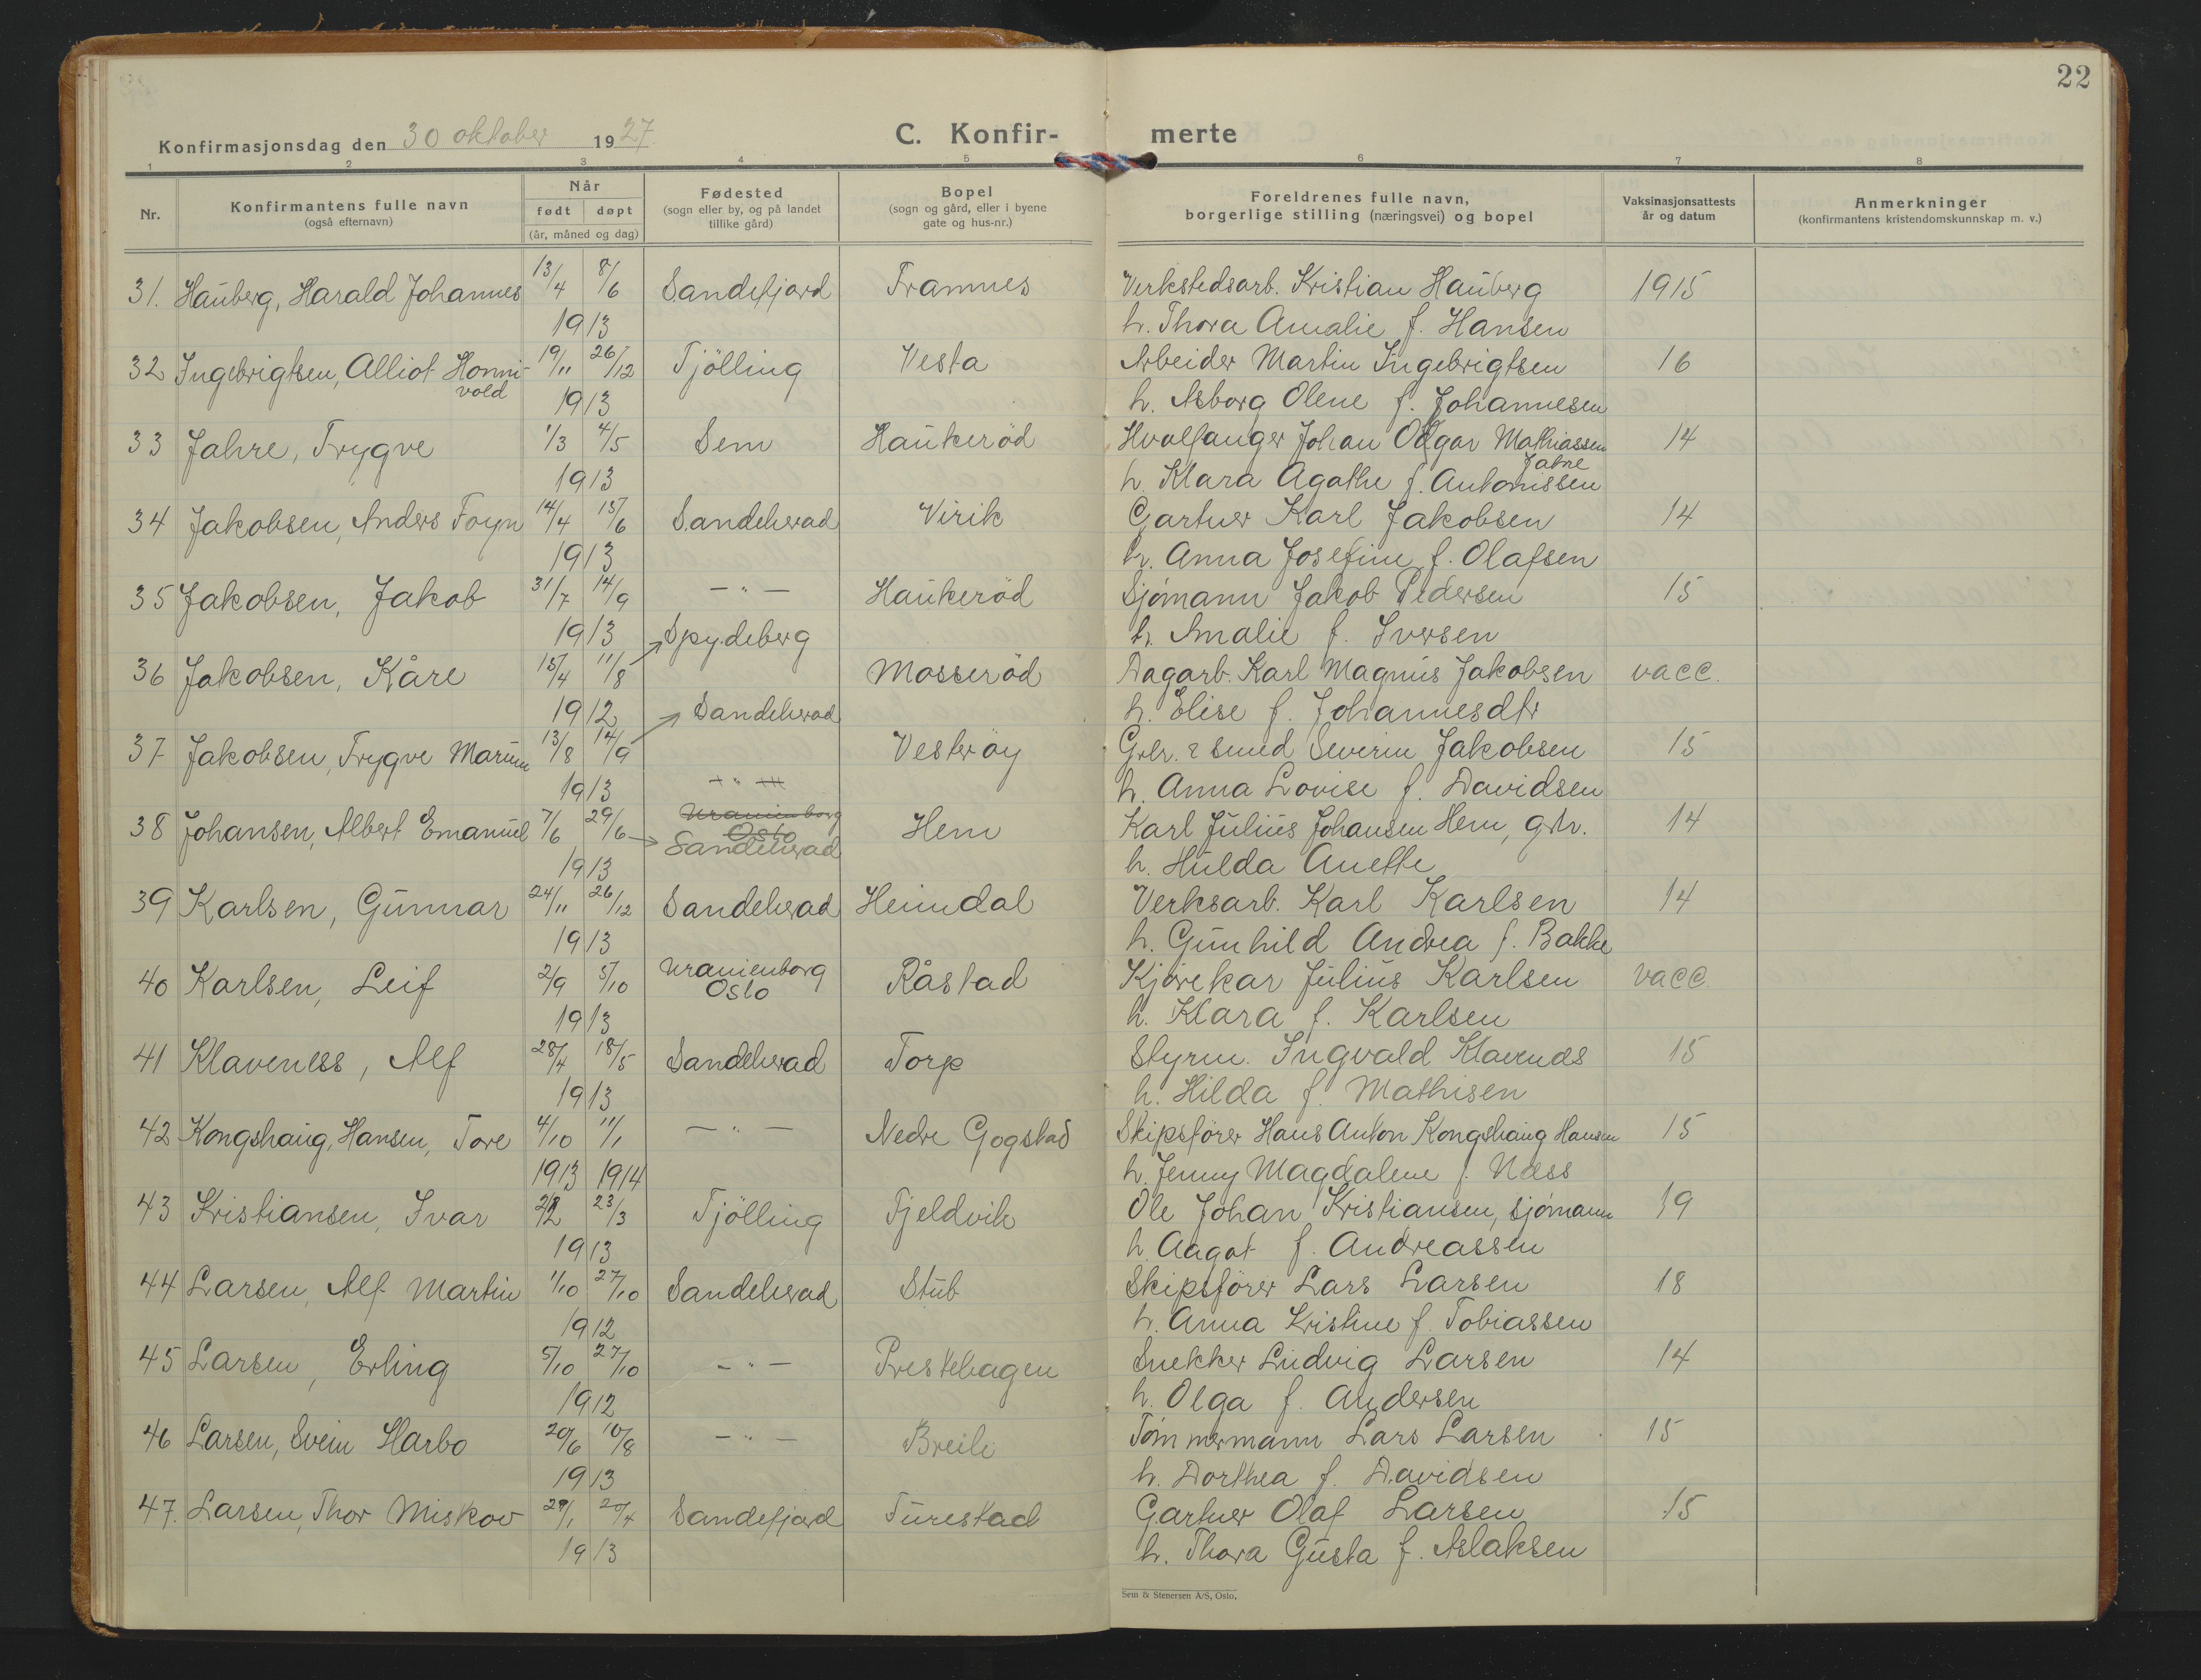 22
Konfirmasjonsdag den 30 oktober 1927
C. Konfir- merte
1 2 3 4 5 6 7 8
Nr.
Konfirmantens fulle navn
(også efternavn)
Når
født døpt
(år, måned og dag)
Fødested
(sogn eller by, og på landet
tillike gård)
Bopel
(sogn og gård, eller i byene
gate og hus-nr.)
Foreldrenes fulle navn,
borgerlige stilling (næringsvei) og bopel
Vaksinasjonsattests
år og datum
Anmerkninger
(konfirmantens kristendomskunnskap m. v.)
31. Hauberg, Harald Johannes 13/4 8/6 Sandefjord Framnes Verkstedsarb. Kristian Hauberg 1915
1913 h. Thora Amalie f. Hansen
32 Ingebrigtsen, Alliot Honni- 19/11 26/12 Tjölling Vesta Arbeider Martin Ingebrigtsen 16
vold 1913 h. Asborg Olene f. Johannesen
33 Jahre, Trygve 1/3 4/5 Sem Haukeröd Hvalfanger Johan Odgar Mathiassen 14
Jahre
1913 h. Klara Agathe f. Antonissen
34 Jakobsen, Anders Foyn 14/4 15/6 Sandeherad Virik Gartner Karl Jakobsen 14
1913 h. Anna Josefine f. Olafsen
35 Jakobsen, Jakob 31/7 14/9 — " — Haukeröd Sjømann Jakob Pedersen 15
1913 Spydeberg h. Amalie f. Iversen
36 Jakobsen, Kåre 15/4 11/8 Mosseröd Dagarb. Karl Magnus Jakobsen vacc.
1912 Sandeherad h. Elise f. Johannesdtr
37 Jakobsen, Trygve Marius 13/8 14/9 Vesteröy Gbr. & smed Severin Jakobsen 15
1913 — " — h. Anna Lovise f. Davidsen
38 Johansen, Albert Emanuel 7/6 29/6 Uranienborg Oslo Hem Karl Julius Johansen Hem, gbr. 14
Sandeherad
1913 h. Hulda Anette
39 Karlsen, Gunnar 24/11 26/12 Sandeherad Heimdal Verksarb. Karl Karlsen 14
1913 h. Gunhild Andrea f. Bakke
40 Karlsen, Leif 2/9 5/10 Uranienborg Oslo Råstad Kjørekar Julius Karlsen vacc.
1913 h. Klara f. Karlsen
41 Klaveness, Alf 28/4 18/5 Sandeherad Torp Styrm. Ingvald Klavenes 15
1913 h. Hilda f. Mathisen
42 Kongshaug, Hansen, Tore 4/10 11/1 — " — Nedre Gogstad Skipsfører Hans Anton Kongshaug Hansen 15
1913 1914 h. Jenny Magdalene f. Næss
43 Kristiansen, Ivar 2/2 23/3 Tjölling Fjeldvik Ole Johan Kristiansen, sjømann 19
1913 h. Aagot f. Andreassen
44 Larsen, Alf Martin 1/10 27/10 Sandeherad Stub Skipsfører Lars Larsen 18
1912 h. Anna Kristine f. Tobiassen
45 Larsen, Erling 5/10 27/10 — " — Prestehagen Snekker Ludvig Larsen 14
1912 h. Olga f. Andersen
46 Larsen, Svein Harbo 20/6 10/8 — " — Breili Tømmermann Lars Larsen 15
1913 h. Dorthea f. Davidsen
47. Larsen, Thor Miskov 29/1 20/4 Sandefjord Furestad Gartner Olaf Larsen 15
1913 h. Thora Gusta f. Aslaksen
Sem & Stenersen A/S, Oslo.